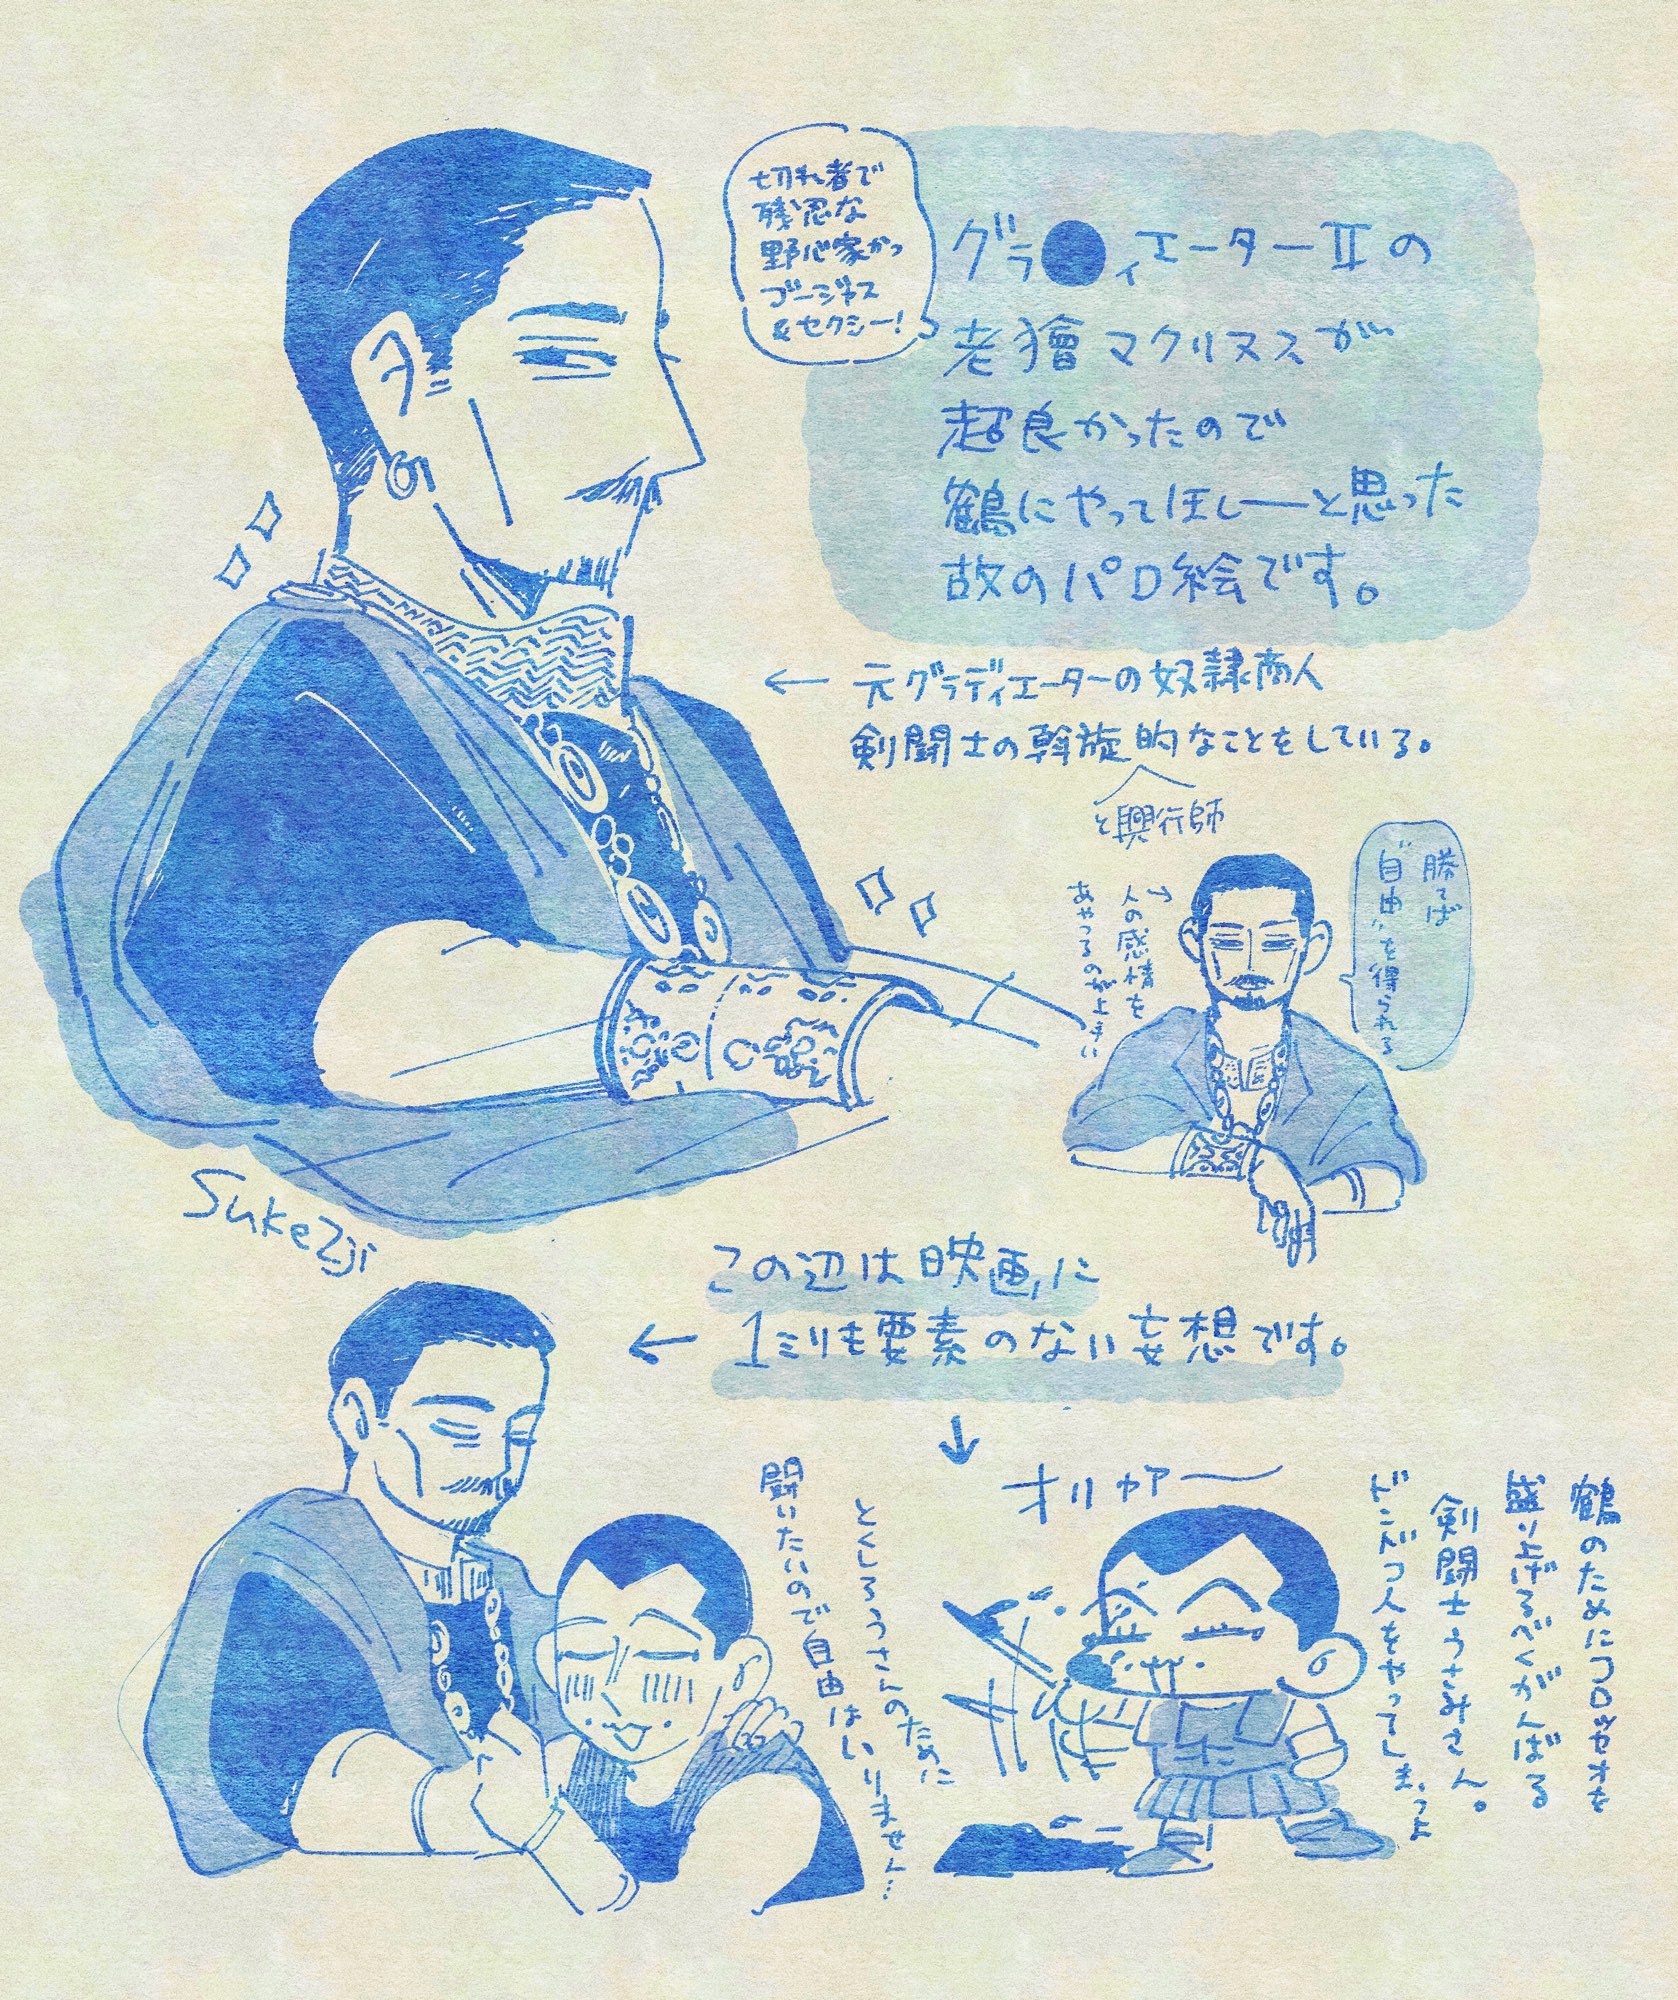 切れ者で
残忍な
野心家かつ
ゴージャス
&セクシー!
グラ●ィエーターⅡの
老獪マクリヌスが
超良かったので
鶴にやってほしーーと思った
故のパロ絵です。
← 元グラディエーターの奴隷商人
剣闘士の斡旋的なことをしている。
と興行師
人の感情を
あやつるのが上手い
勝てば
"自由"を得られる
Sukezji
この辺は映画に
1ミリも要素のない妄想です。
とくしろうさんのために
闘いたいので自由はいりません…
オリャアー
鶴のためにコロッセオを
盛り上げるべくがんばる
剣闘士うさみさん。
ドンドン人をやってしまっよ